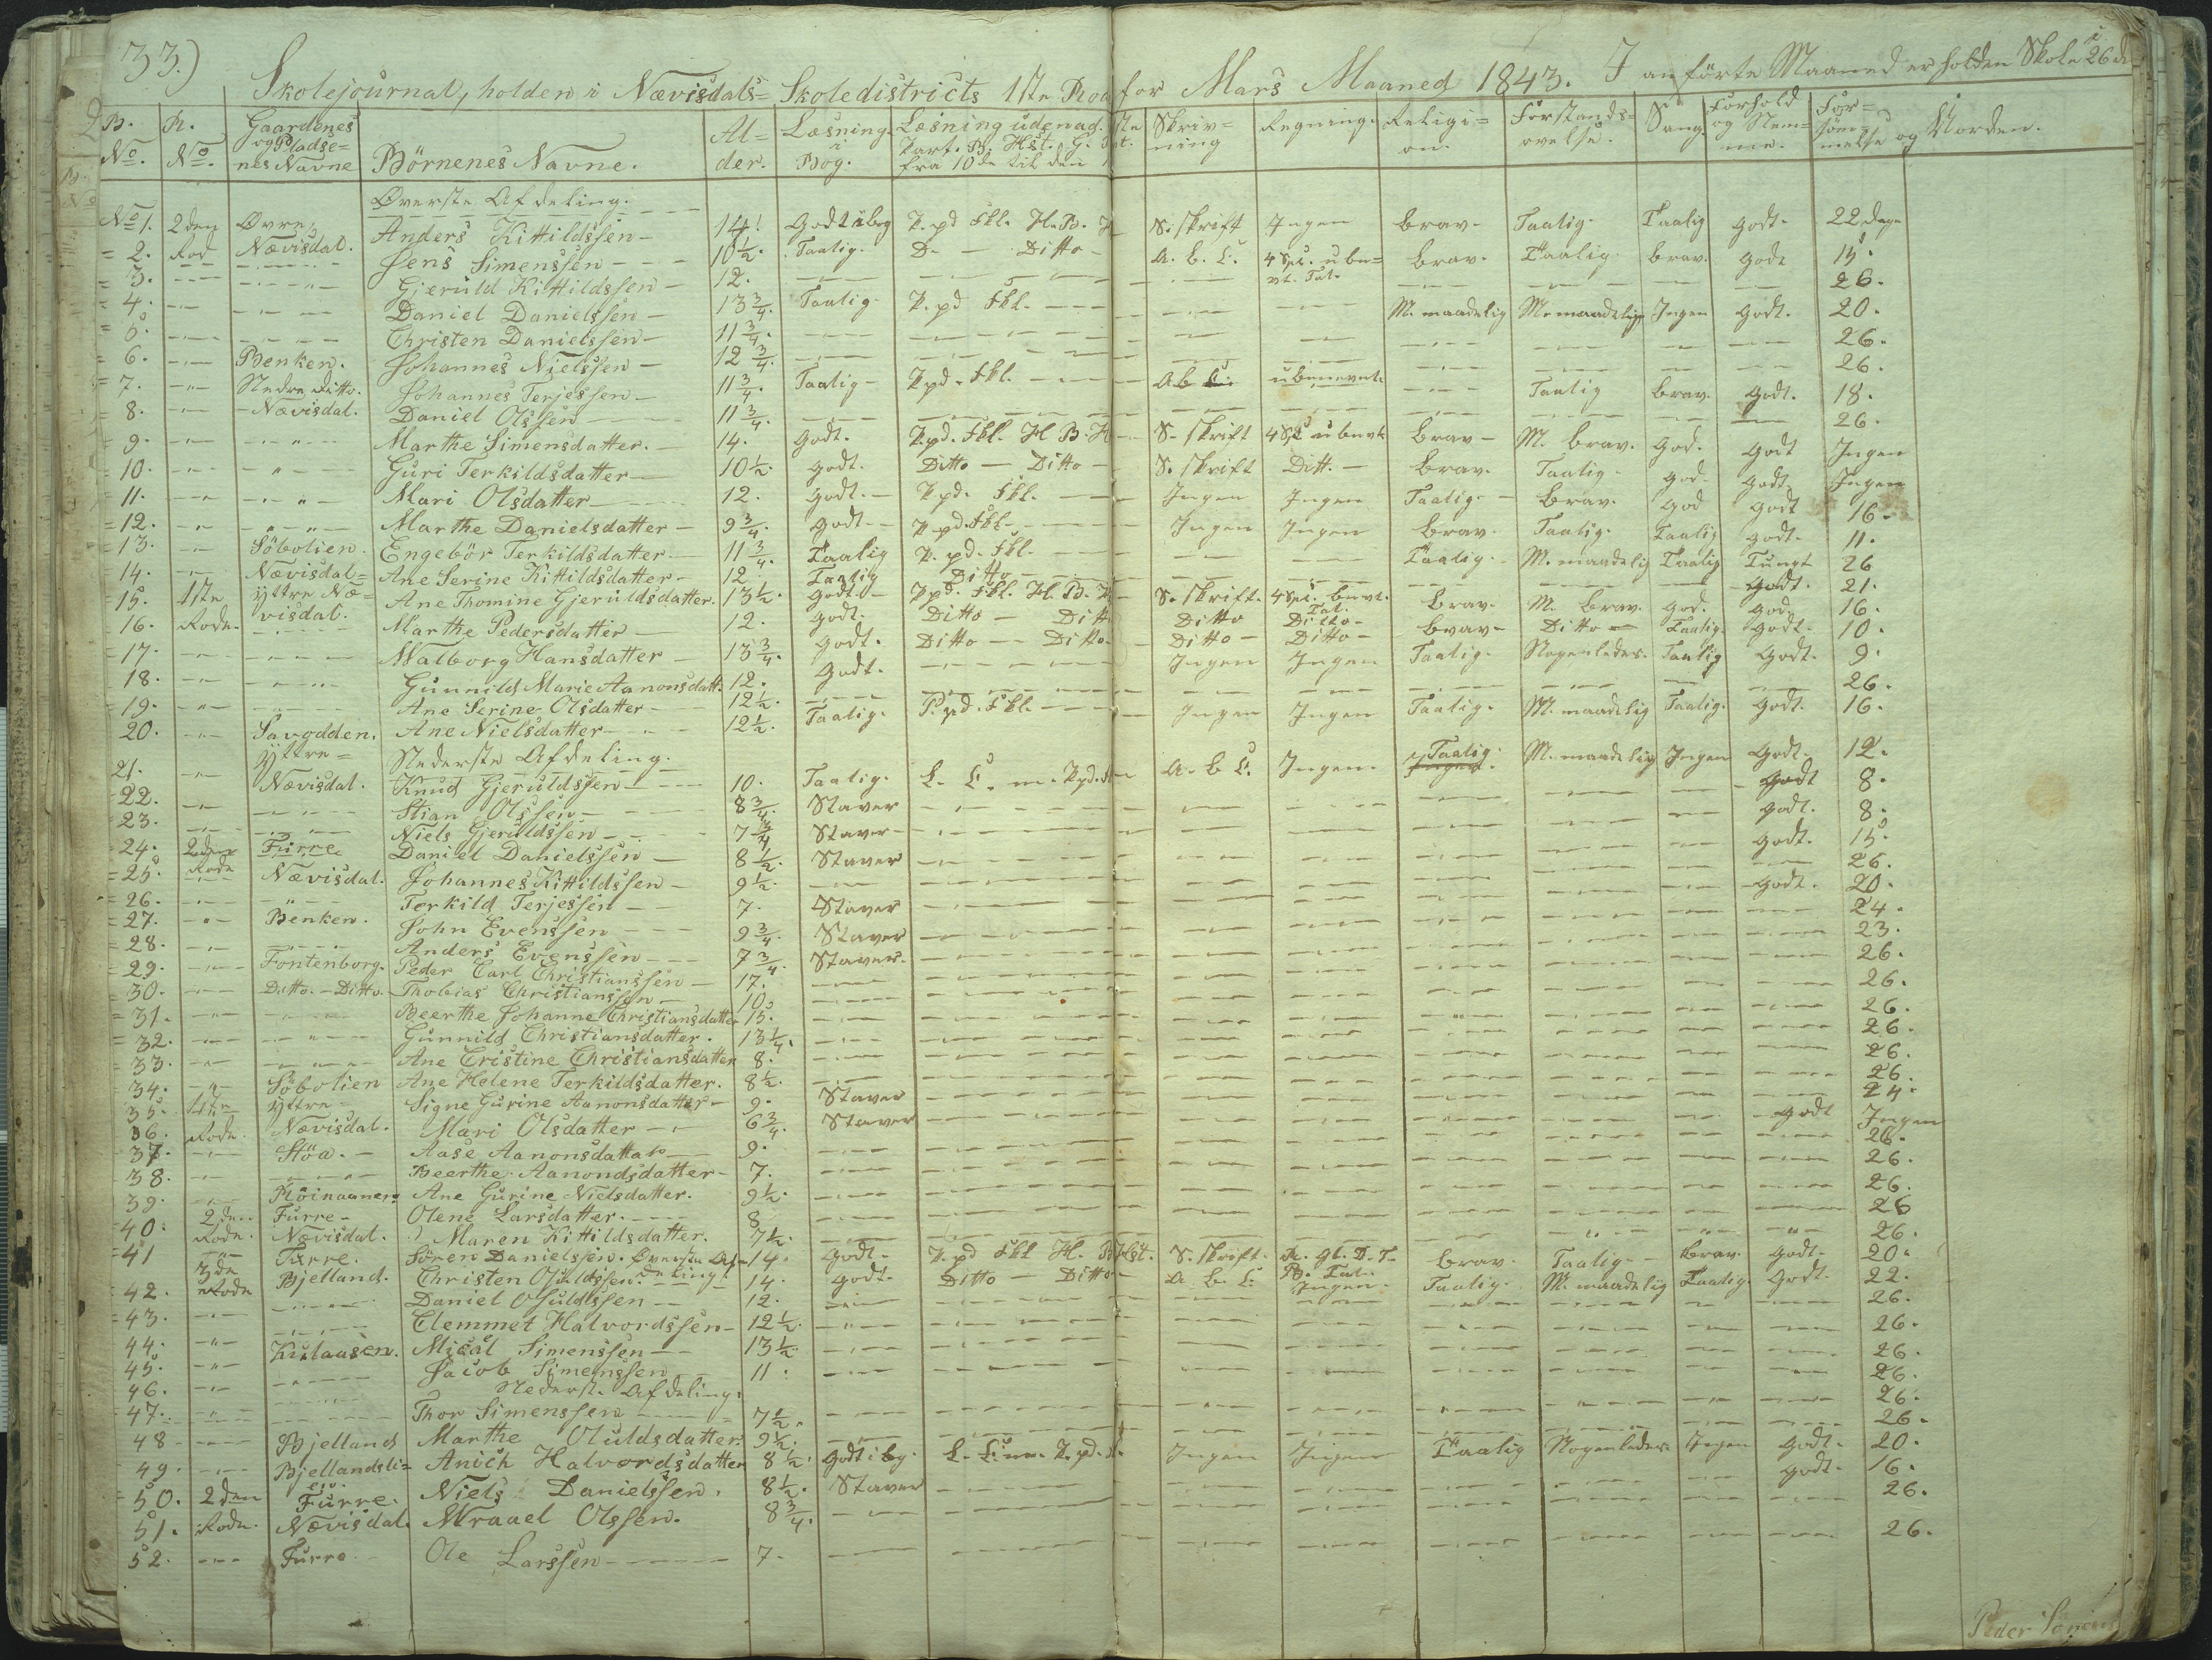 33.)
Skolejournal, holden i Nævisdals= Skoledistricts 1ste Roa for Mars Maaned 1843. I anførte Maaned er holden Skole i 26 d
B. No. R. No. Gaardenes og Pladse= nes Navne Börnenes Navne. Al= der. Læsning i Bog. Læsning udenad. fra 10de til den Skriv= ning Regning. Religi= on. Forstands= øvelse. Sang Forhold og Nem= me. For= sømmelse og Uorden.
Øverste Afdeling.
No 1. 2den Øvre Anders Kittildssen 14! Godt i bog P. pd Fkl. H. B. S. skrift Ingen brav. Taalig. Taalig godt. 22 dage
2. Rod Nævisdal. Jens Simenssen 10½. Taalig. D. Ditto A. b. C. 4 Spc. ube= brav. Taalig. brav. godt 15.
3. Gjeruld Kittildssen 12. 26.
4. Daniel Danielssen 13¾. Taalig. P. pd Fkl. M. maadelig M. maadelig Ingen godt. 20.
5. Christen Danielssen 11¾. 26.
6. Benken. Johannes Nielssen 12¾. 26.
7. Nedre Ditto. Johannes Terjessen 11¾. Taalig P. pd. Fkl. A b C. ubenevnt. Taalig brav. godt. 18.
8. Nævisdal. Daniel Olssen 11¾. 26.
9. Marthe Simensdatter. 14. Godt. P. pd. Fkl. H. B. S. skrift 4 Spc ubnvt brav M. brav. god. godt Ingen
10. Guri Terkildsdatter 10½. godt. Ditto Ditto S. skrift Ditt. brav. Taalig god. godt Ingen
11. Mari Olsdatter 12. godt. P. pd. Fkl. Ingen Ingen Taalig. brav. god godt 16.
12. Marthe Danielsdatter 9¾. godt P. pd. Fkl. Ingen Ingen brav. Taalig. Taalig godt. 11.
13. Söbolien. Engebör Terkildsdatter 11¾. Taalig P. pd. Fkl. Taalig. M. maadelig Taalig Tungt 26
14. Nævisdal Ane Serine Kittildsdatter 12. Taalig Ditto godt. 21.
15. 1ste Yttre Næ= Ane Thomine Gjeruldsdatter. 13½. godt. P. pd. Fkl. H. B. S. skrift. 4 Spc. bnvt. brav. M. brav. god. god 16.
16. Rode. visdal. Marthe Pedersdatter 12. godt. Ditto Ditt Ditto Tal. Ditto brav Ditto Taalig. godt 10.
17. Walborg Hansdatter 13¾. godt. Ditto Ditto. Ditto Ditto Taalig. Nogenledes. Taalig godt. 9.
18. Gunnild Marie Aanonsdatt. 12. Godt. Ingen Ingen 26.
19. Ane Serine Olsdatter 12½. 16.
20. Savodden. Ane Nielsdatter 12½. Taalig. P. pd. Fkl. Ingen Ingen Taalig. M. maadelig Taalig. godt.
Yttre= Nederste Afdeling.
21. Nævisdal. Knud Gjeruldssen 10. Taalig. L. C. m. P. pd. A. b C. Ingen. Taalig. M. maadelig Ingen godt. 12.
22. Stian Olssen 8¾. Staver godt 8.
23. Niels Gjeruldssen 7¾ Staver godt. 8.
24. 2den Furre Daniel Danielssen 8½. Staver godt. 15.
25. Rode Nævisdal. Johannes Kittildssen 9½. 26.
26. Terkild Terjessen 7. Staver godt. 20.
27. Benken. John Evenssen 9¾. Staver 24.
28. Anders Evenssen 7¾. Staver. 23.
29. Fontenborg. Peder Carl Christianssen 17. 26.
30. Ditto. Ditto. Thobias Christianssen 10. 26.
31. Beerthe Johanne Christiansdatter 15. 26.
32. Gunnild Christiansdatter. 13¼. 26.
33. Ane Cristine Christiansdatter 8. 26.
34. Söbolien Ane Helene Terkildsdatter. 8½. 26.
35. 1ste Yttre Signe Gurine Aanonsdatter 9. Staver 24.
36. Rode. Nævisdal. Mari Olsdatter 6¾. Staver godt Ingen
37. Stöa. Aase Aanonsdatter 9. 26.
38. Beerthe Aanondsdatter 7. 26.
39. Röinaanen. Ane Gurine Nielsdatter. 9½. 26.
40. 2den Furre Olene Larsdatter. 8 26
Rode. Nævisdal. Maren Kittildsdatter. 7½. 26.
41 Furre. Sören Danielssen. Øverste Afdeling. 14. godt. P. pd Fkl H. B Hst. S. skrift. brav. Taalig. brav. godt 20.
3de Rode Bjelland. Christen Osuldssen. 14. godt. Ditto Ditto A. b. C. Ingen. Taalig. M. maadelig Taalig. Godt. 22.
42. Daniel Osuldssen 12. 26.
43. Clemmet Halvordssen 12½. 26.
44. Kislaasen. Micäl Simenssen 13½. 26.
45. Jacob Simenssen 11. 26.
46. Nederste Afdeling. 26.
47. Thor Simenssen 7½. 26.
48 Bjelland Marthe Osuldsdatter. 9½.
49. Bjellandsli= Anich Halvordsdatter 8½. godt i bg. L. C. m. P. pd. Ingen Ingen Taalig Nogenledes Ingen godt. 20.
50. 2den Furre. Niels Danielssen. 8½. Staver godt. 16.
51. Rode. Nævisdal. Wraael Olssen. 8¾. 26.
52. Furre Ole Larssen 7. 26.
Peder Sörens